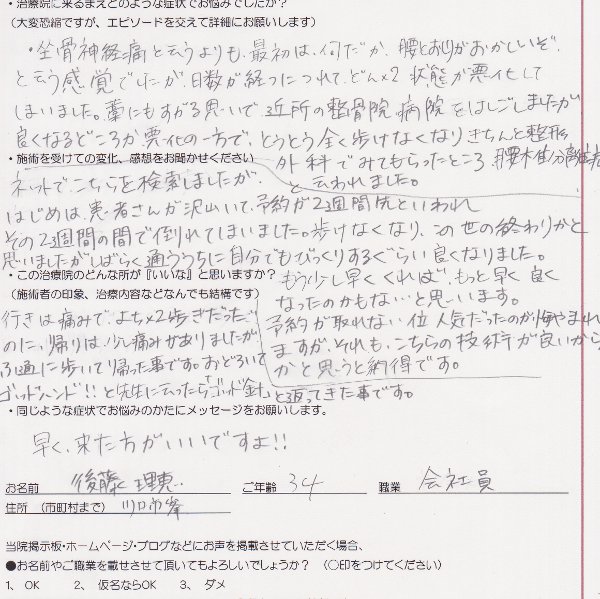 ・治療院に来るまえどのような症状でお悩みでしたか？
(大変恐縮ですが、エピソードを交えて詳細にお願いします)
・坐骨神経痛と云うよりも、最初は、何だか、腰とおしりがおかしいぞ、
と云う感覚でしたが日数が経つにつれて、どんどん×2 状態が悪化して
しまいました。藁にもすがる思いで、近所の整骨院、病院をはしごしましたが
良くなるどころか悪化の一方で、とうとう全く歩けなくなりきちんと整形
外科でみてもらったところ、腰木椎分離症
と云われました。
・施術を受けての変化、感想をお聞かせください
ネットで、こちらを検索しましたが、
はじめは、患者さんが沢山いて、予約が2週間先といわれ
その2週間の間で倒れてしまいました。歩けなくなり、この世の終わりかと
思いましたがしばらく通ううちに自分でもびっくりするぐらい良くなりました。
もう少し早くくれば、もっと早く良く
なったのかもな…と思います。
予約が取れない位人気だったのが悔やまれ
ますが、それも、こちらの技術が良いから
かと思うと納得です。
・この治療院のどんな所が『いいな』と思いますか？
(施術者の印象、治療内容などなんでも結構です)
行きは痛みで、よち×2歩きだった
のに、帰りは、少し痛みがありましたが
ふ通に歩いて帰った事です。おどろいて
ゴッドハンド!!と先生に云ったら「ゴッド針」と返ってきた事です。
・同じような症状でお悩みのかたにメッセージをお願いします。
早く、来た方がいいですよ!!
お名前 後藤 理恵 ご年齢 34 職業 会社員
住所 (市町村まで) 川口市峯
当院掲示板・ホームページ・ブログなどにお声を掲載させていただく場合、
●お名前やご職業を載せさせて頂いてもよろしいでしょうか？ (○印をつけてください)
1、OK 2、仮名ならOK 3、ダメ